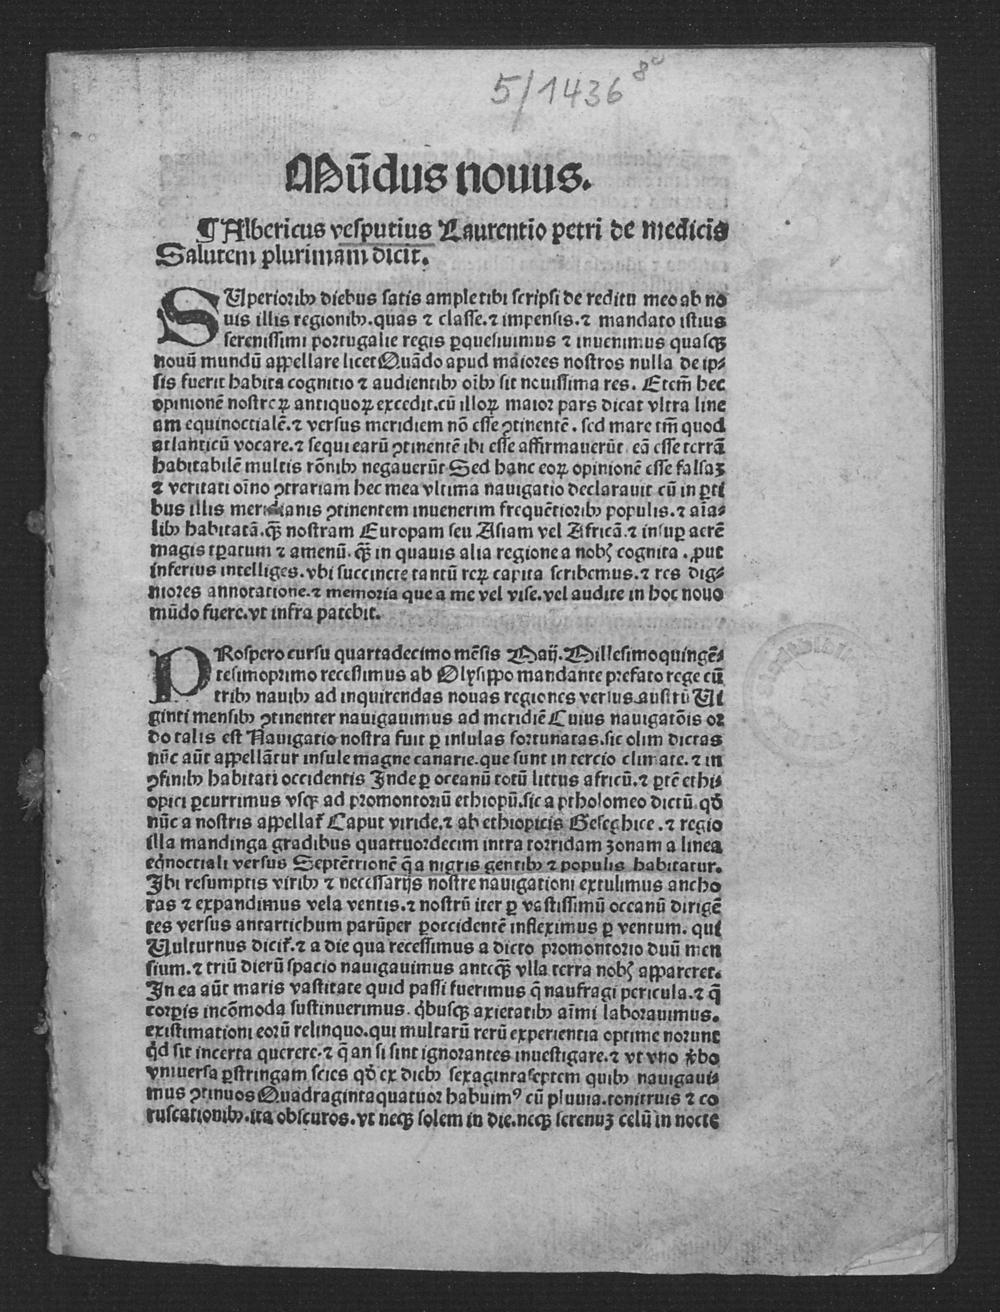 5/1436 8°
Mūdus nouus.
¶Albericus vesputius Laurentio petri de medicis
Salutem plurimam dicit.
SUperioribꝰ diebus satis ample tibi scripsi de reditu meo ab no
uis illis regionibꝰ.quas ⁊ classe.⁊ impensis.⁊ mandato istius
serenissimi portugalie regis ꝑquesiuimus ⁊ inuenimus quasqꝫ
nouū mundū appellare licet Quādo apud maiores nostros nulla de ip⸗
sis fuerit habita cognitio ⁊ audientibꝰ oībꝰ sit nouissima res. Etem̄ hec
opinionē nostroꝝ antiquoꝝ excedit.cū illoꝝ maior pars dicat vltra line
am equinoctialē.⁊ versus meridiem nō esse ꝯtinentē. sed mare tm̄ quod
atlanticū vocare.⁊ sequi earū ꝯtinentē ibi esse affirmauerūt eā esse terrā
habitabilē multis rōnibꝰ negauerūt Sed hanc eoꝝ opinionē esse falsaꝫ
⁊ veritati oīno ꝯtrariam hec mea vltima nauigatio declarauit cū in ꝑti
bus illis meridianis ꝯtinentem inuenerim frequētioribꝰ populis.⁊ aīa⸗
libꝰ habitatā.qꝫ̄ nostram Europam seu Asiam vel Africā.⁊ insuꝑ aerē
magis tꝑatum ⁊ amenū.qꝫ̄ in quauis alia regione a nobꝭ cognita .ꝓut
inferius intelliges.vbi succincte tantū reꝝ capita scribemus.⁊ res dig⸗
niores annotatione.⁊ memoria que a me vel vise.vel audite in hoc nouo
mūdo fuere.vt infra patebit.
PRospero cursu quartadecimo mēsis Maij.Millesimoquingē⸗
tesimoprimo recessimus ab Olysippo mandante prefato rege cū
tribꝰ nauibꝰ ad inquirendas nouas regiones versus austrū Ui
ginti mensibꝰ ꝯtinenter nauigauimus ad meridiē Cuius nauigatōis or
do talis est Nauigatio nostra fuit ꝑ insulas fortunatas.sic olim dictas
nūc aūt appellātur insule magne canarie.que sunt in tercio climate.⁊ in
ꝯfinibꝰ habitati occidentis Inde ꝑ oceanū totū littus africū.⁊ ꝑtē ethi⸗
opici ꝑcurrimus vsqꝫ ad promontoriū ethiopū.sic a ptholomeo dictū qđ
nūc a nostris appellaꞇ᷑ Caput viride.⁊ ab ethiopicis Beseghice .⁊ regio
illa mandinga gradibus quattuordecim intra torridam zonam a linea
eq̇noctiali versus Septētrionē q̄ a nigris gentibꝰ ⁊ populis habitatur.
Ibi resumptis viribꝰ ⁊ necessarijs nostre nauigationi extulimus ancho
ras ⁊ expandimus vela ventis.⁊ nostrū iter ꝑ vastissimū oceanū dirigē
tes versus antartichum parūper ꝑoccidentē infleximus ꝑ ventum. qui
Uulturnus diciꞇ᷑.⁊ a die qua recessimus a dicto promontorio duū men
sium.⁊ triū dierū spacio nauigauimus anteqꝫ̄ vlla terra nobꝭ appareret.
In ea aūt maris vastitate quid passi fuerimus q̄ naufragi pericula.⁊ q̄
corꝑis incōmoda sustinuerimus. q̇busqꝫ axietatibꝰ aīmi laborauimus.
existimationi eorū relinquo.qui multarū rerū experientia optime norunt
q̇d sit incerta querere.⁊ q̄ an si sint ignorantes inuestigare.⁊ vt vno v̾bo
vniuersa ꝑstringam scies qđ ex diebꝰ sexagintaseptem quibꝰ nauigaui⸗
mus ꝯtinuos Quadragintaquatuor habuimꝰ cū pluuia.tonitruis ⁊ co
ruscationibꝰ.ita obscuros.vt neqꝫ solem in die.neqꝫ serenuꝫ celū in nocte